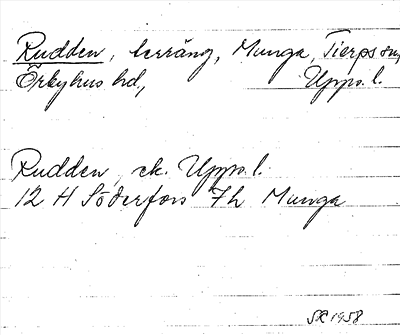 Rudden, lerräng, Munga, Tierps sn,
Örbyhus hd, Upps.l.
Rudden, ek. Upps.l.
12 H Söderfors 7h Munga
SR 1958